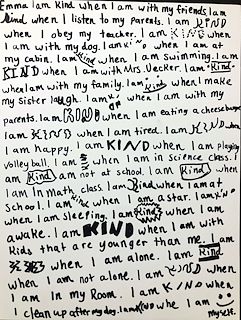 Emma I am kind when I am with my friends. I am
kind when I listen to my parents. I am KIND
when I obey my teacher. I am KIND when
I am with my dog. I am when I am at
my cabin. I am kind when I am swimming. I am
KIND when I am with Mrs. Uecker. I am "Kind"
when I am with my family. I am Kind when I make
my sister laugh. I am when I am with my
parents. I am KIND when I am eating a cheeseburger.
I am KIND when I am tired. I am KIND when
I am happy. I am KIND when I am playing
volleyball. I am when I am in science class. I
am Kind am not at school. I am Kind when
I am In math class I am Kind when I am at
school. I am kind when I am a star. I am
when I am sleeping. I am Kind when I am
awake. I am KIND when I am with
Kids that are younger than me. I am
when I am alone. I am Kind
when I am not alone. I am KIND when
I am In my Room. I am KIND when
I clean up after my dog. I am KIND whe I am
myself.